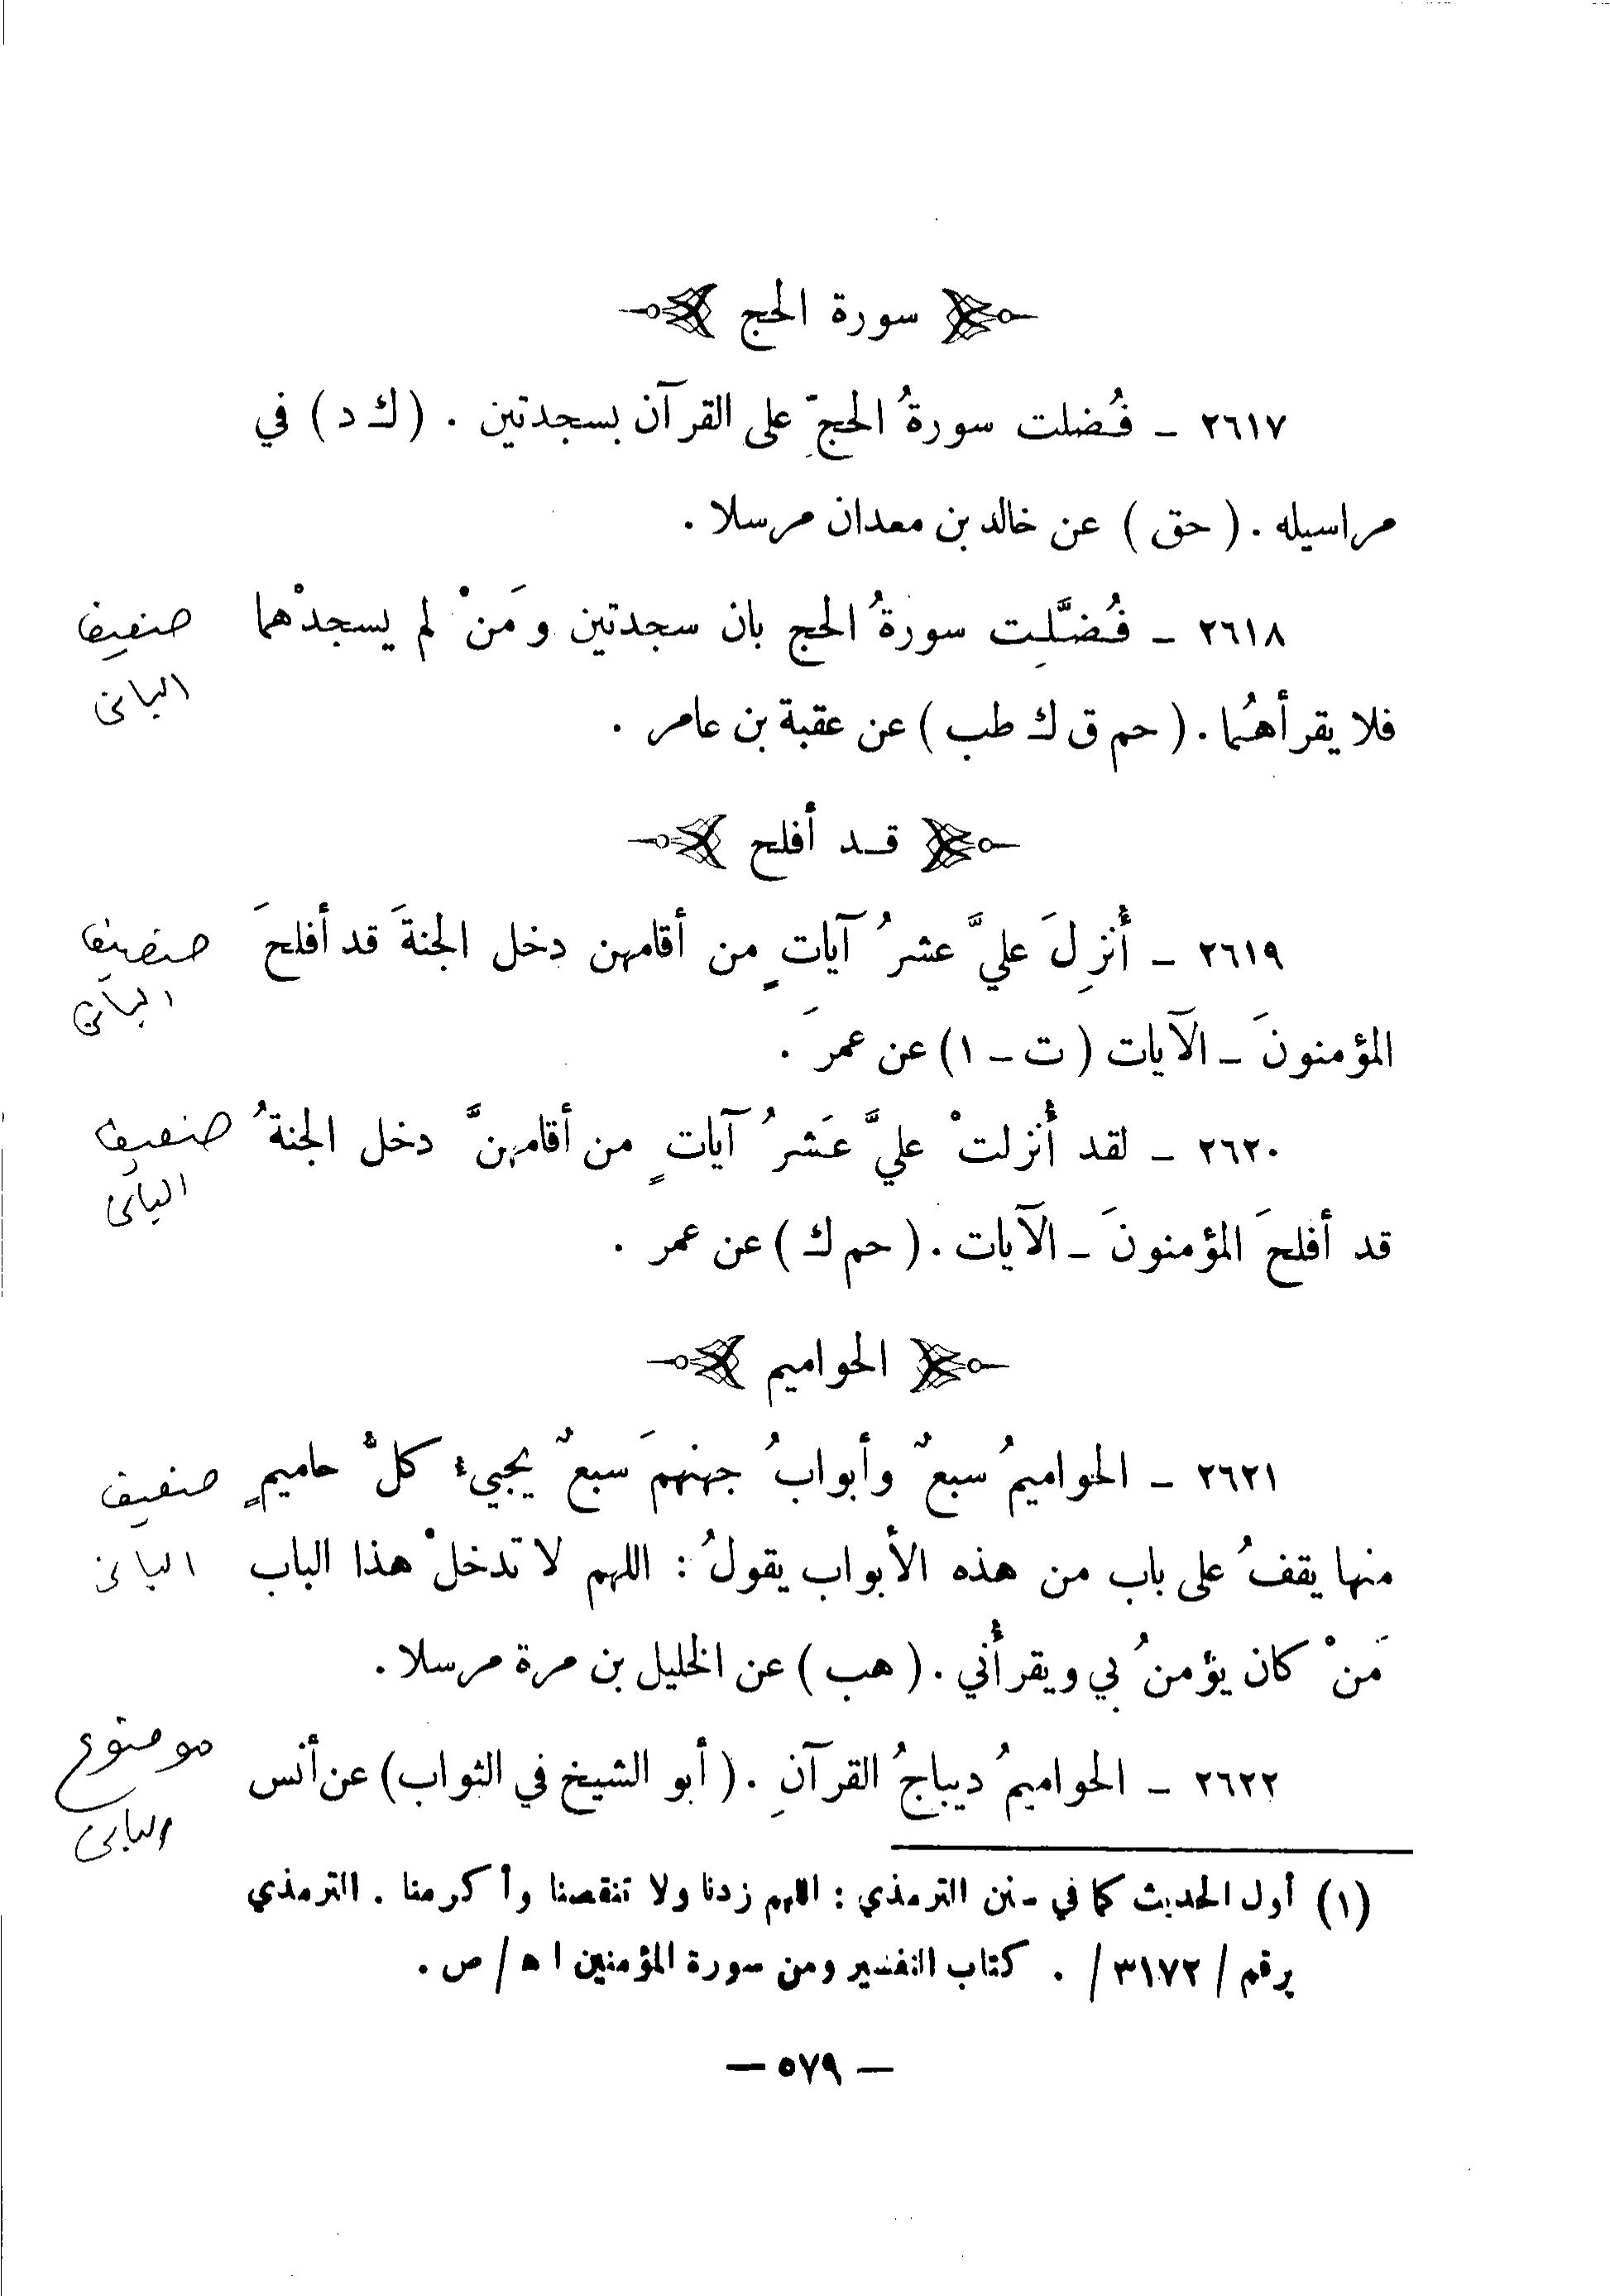 سورة الحج
٢٦١٧ - فُضلت سورةُ الحجِّ على القرآن بسجدتين . ( ك د ) في
مراسيله . ( حق ) عن خالد بن معدان مرسلا .
٢٦١٨ - فُضِّلت سورةُ الحج بان سجدتين ومَنْ لم يسجدْهما
ضعيف
البانى
فلا يقرأهُما . ( حم ق ك طب ) عن عقبة بن عامر .
قد أفلح
٢٦١٩ - أُنزِلَ عليَّ عشرُ آياتٍ من أقامهن دخل الجنةَ قد أفلحَ
ضعيف
البانى
المؤمنونَ - الآيات ( ت - ١ ) عن عمرَ .
٢٦٢٠ - لقد أُنزلتْ عليَّ عَشرُ آياتٍ من أقامهنَّ دخل الجنةُ
ضعيف
البانى
قد أفلحَ المؤمنونَ - الآيات . ( حم ك ) عن عمر .
الحواميم
٢٦٢١ - الحواميمُ سبعٌ وأبوابُ جهنمَ سبعٌ يجيءُ كلُّ حاميمٍ
ضعيف
منها يقفُ على باب من هذه الأبواب يقولُ : اللهم لا تدخلْ هذا الباب
البانى
مَنْ كان يؤمنُ بي ويقرأُني . ( هب ) عن الخليل بن مرة مرسلا .
موضوع
٢٦٢٢ - الحواميمُ ديباجُ القرآنِ . ( أبو الشيخ في الثواب ) عن أنس
البانى
(١) أول الحديث كما في سنن الترمذي : اللهم زدنا ولا تنقصنا وأكرمنا . الترمذي
برقم / ٣١٧٢ / . كتاب التفسير ومن سورة المؤمنين ا ه / ص .
- ٥٧٩ -